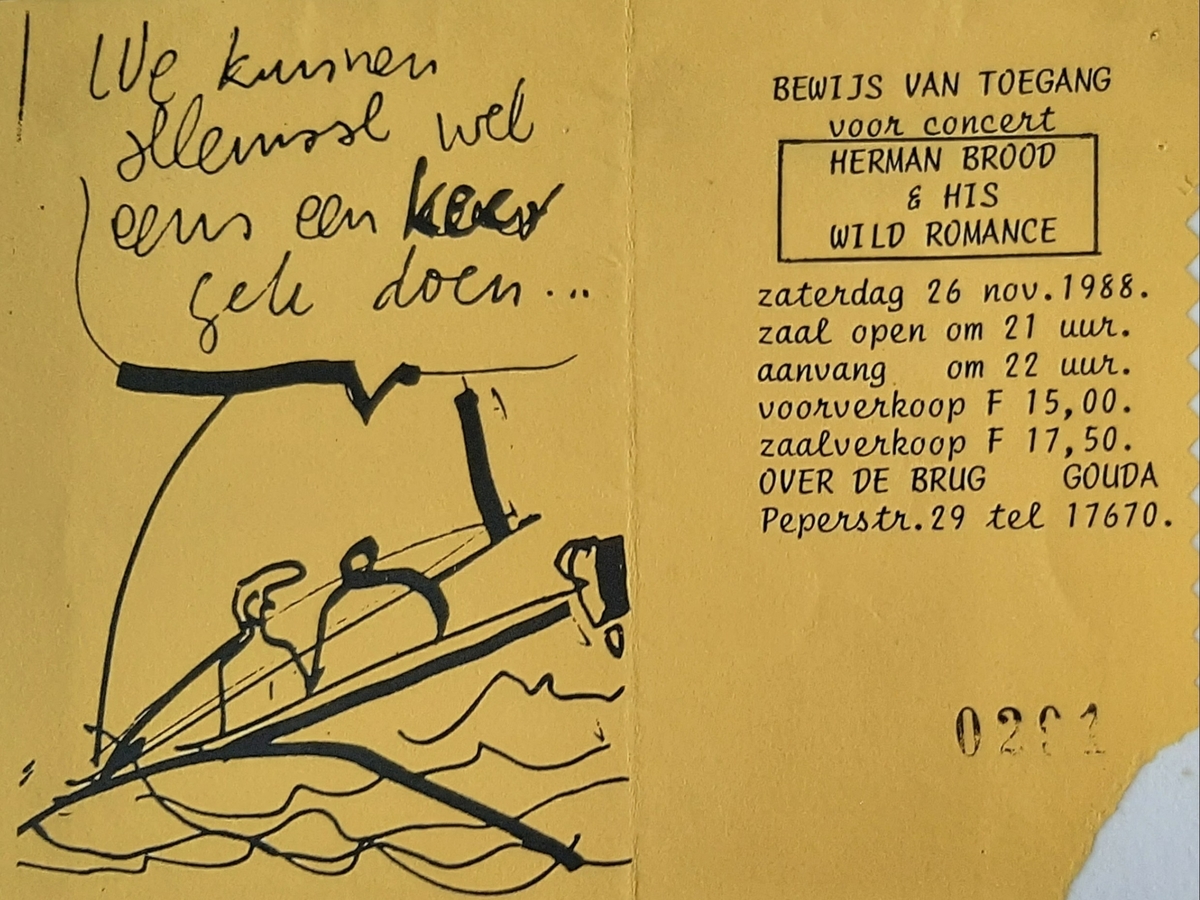 We kunnen
allemaal wel
eens een keer
gek doen...
BEWIJS VAN TOEGANG
voor concert
HERMAN BROOD
& HIS
WILD ROMANCE
zaterdag 26 nov.1988.
zaal open om 21 uur.
aanvang om 22 uur.
voorverkoop F 15,00.
zaalverkoop F 17,50.
OVER DE BRUG GOUDA
Peperstr.29 tel 17670.